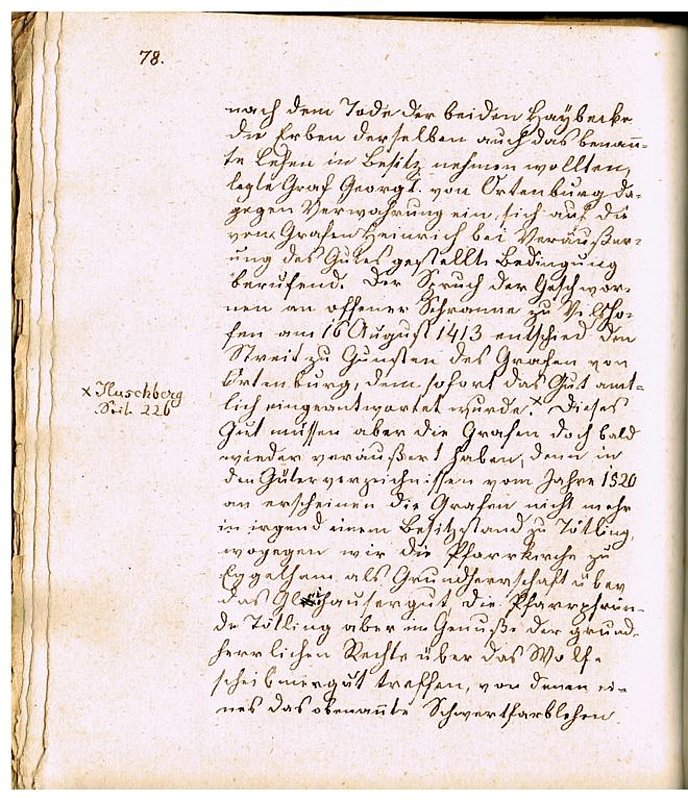 78.
nach dem Tode der beiden Haybecke
die Erben derselben auch das benann-
te Lehen in Besitz nehmen wollten,
legte Graf Georg I. von Ortenburg da-
gegen Verwahrung ein, sich auf die
vom Grafen Heinrich bei Veräußer-
ung des Gutes gestellte Bedingung
berufend. Der Spruch der Geschwor-
nen an offener Schranne zu Vilsho-
fen am 16 August 1413 entschied den
Streit zu Gunsten des Grafen von
Ortenburg, dem sofort das Gut amt-
lich eingeantwortet wurde.x Dieses
x Huschberg
Seite 226
Gut müssen aber die Grafen doch bald
wieder veräußert haben, denn in
den Güterverzeichnissen vom Jahre 1520
an erscheinen die Grafen nicht mehr
in irgend einem Besitzstand zu Tötling,
wogegen wir die Pfarrkirche zu
Egglham als Grundherrschaft über
das hausergut, die Pfarrpfrün-
de Tötling aber im Genuße der grund-
herrlichen Rechte über das Wolf-
scheibmergut treffen, von denen ei-
nes das obenannte Schwertfarblehen